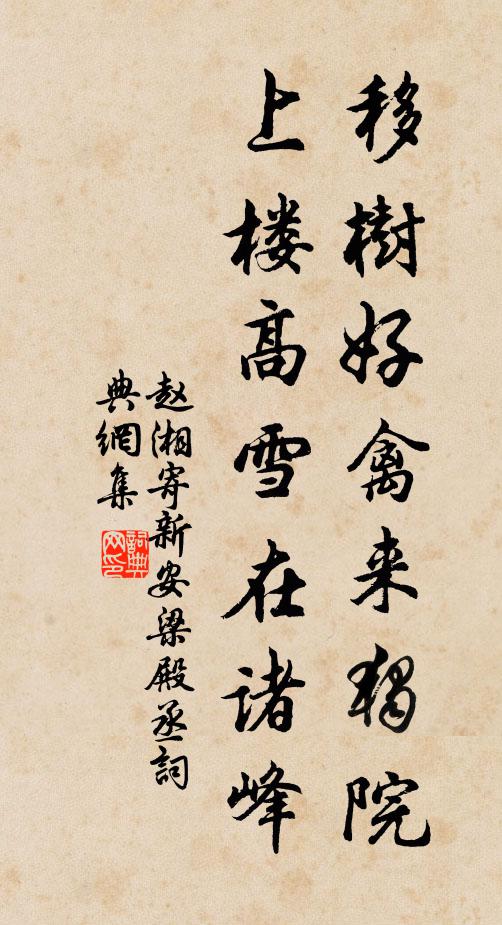 移樹好禽来獨院
上楼高雪在诸峰
赵湘寄新安梁殿丞詞
典網集
詞典
网印